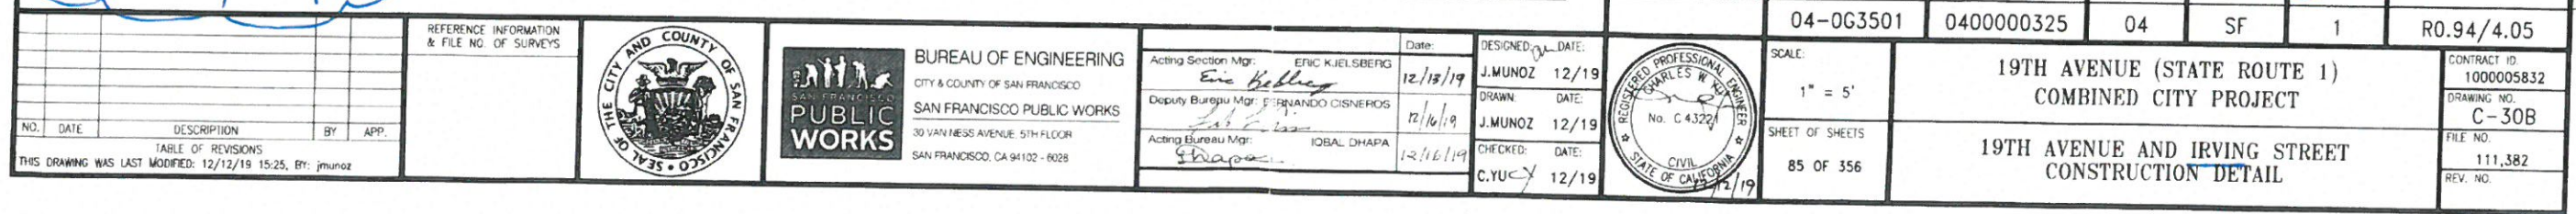 04-0G3501 0400000325 04 SF 1 R0.94/4.05
NO. DATE DESCRIPTION BY APP.
TABLE OF REVISIONS
THIS DRAWING WAS LAST MODIFIED: 12/12/19 15:25, BY: jmunoz
REFERENCE INFORMATION
& FILE NO. OF SURVEYS
SEAL OF THE CITY AND COUNTY OF SAN FRANCISCO
SAN FRANCISCO
PUBLIC
WORKS
BUREAU OF ENGINEERING
CITY & COUNTY OF SAN FRANCISCO
SAN FRANCISCO PUBLIC WORKS
30 VAN NESS AVENUE, 5TH FLOOR
SAN FRANCISCO, CA 94102 - 6028
Date:
Acting Section Mgr: ERIC KJELSBERG
12/13/19
Deputy Bureau Mgr: FERNANDO CISNEROS
12/16/19
Acting Bureau Mgr: IQBAL DHAPA
12/16/19
DESIGNED: DATE:
J.MUNOZ 12/19
DRAWN: DATE:
J.MUNOZ 12/19
CHECKED: DATE:
C.YU CY 12/19
REGISTERED PROFESSIONAL ENGINEER
CHARLES W.
No. C 43221
CIVIL
STATE OF CALIFORNIA
12/12/19
SCALE:
1" = 5'
SHEET OF SHEETS
85 OF 356
19TH AVENUE (STATE ROUTE 1)
COMBINED CITY PROJECT
19TH AVENUE AND IRVING STREET
CONSTRUCTION DETAIL
CONTRACT ID.
1000005832
DRAWING NO.
C-30B
FILE NO.
111,382
REV. NO.